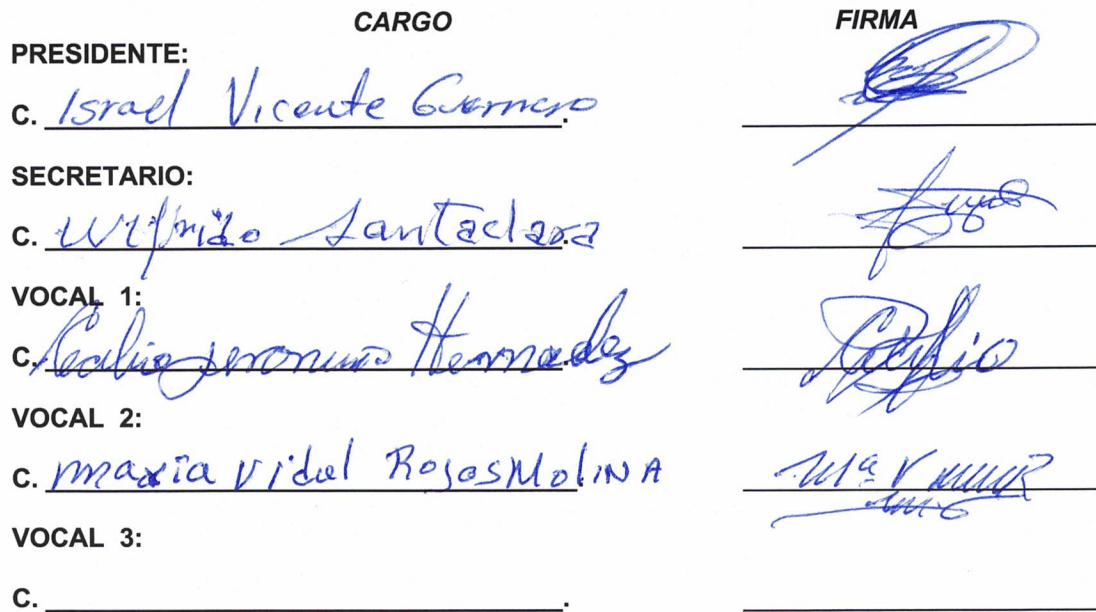 CARGO FIRMA
PRESIDENTE:
C. Israel Vicente Guerrero.
SECRETARIO:
C. Wilfrido Santaclara.
VOCAL 1:
C. Jeronimo Hernadez.
VOCAL 2:
C. maria Vidal Rojas MoliNA
Mª V
VOCAL 3:
C. .